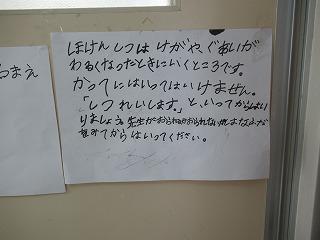 ほけんしつは けがや、ぐあいが
わるくなったときにいくところです。
かってにはいってはいけません。
「しつれいします。」と、いってからはい
りましょう 先生がおられるかおられない
みてからはいってください。
まえ